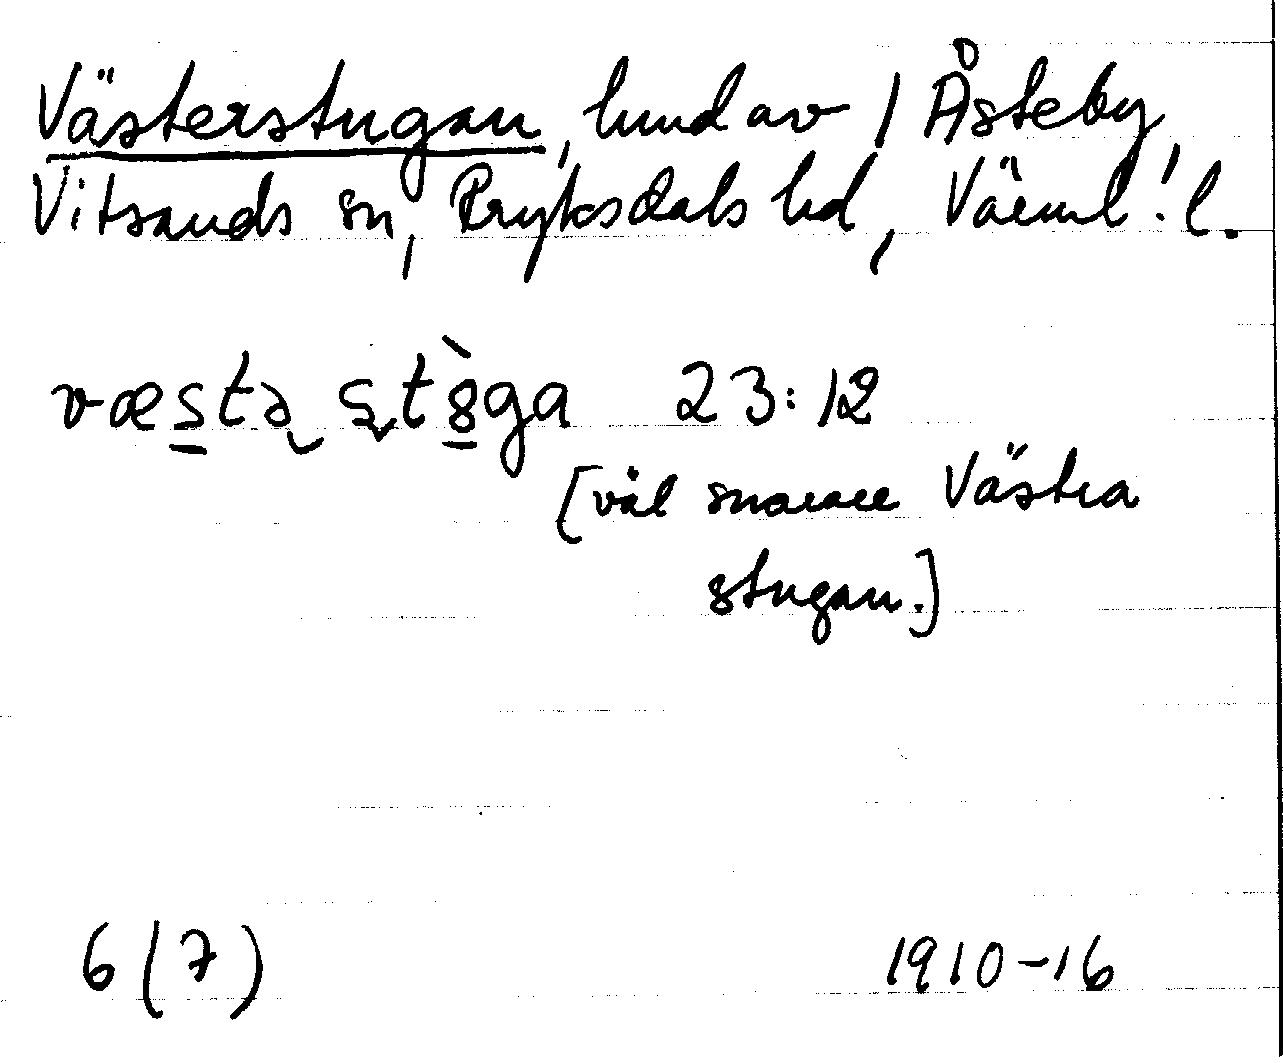 Västerstugan, hmd av 1 Åsteby,
Vitsands sn, Fryksdals hd, Värml. l.
væstə stöga 23:12
[väl snarare Västra
stugan.]
6(7) 1910-16